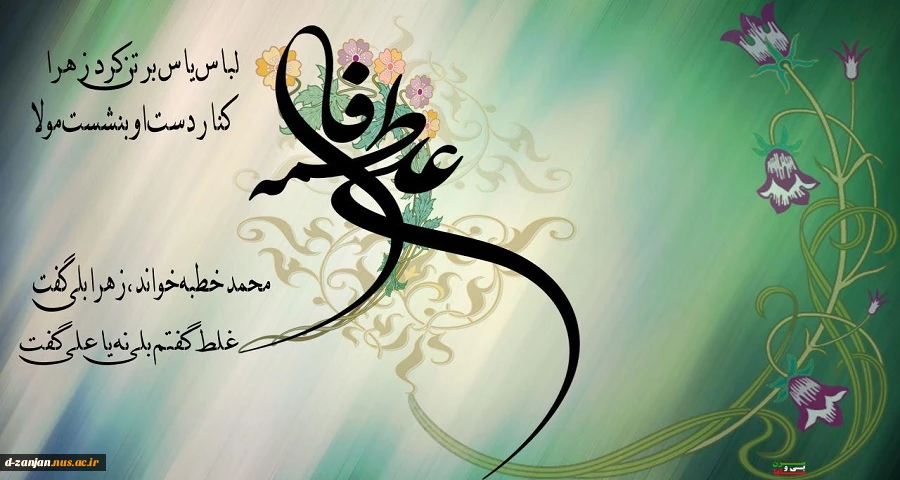 لباس یاس بر تن کرد زهرا
کنار دست او بنشست مولا
علی فاطمه
محمد خطبه خواند، زهرا بلی گفت
غلط گفتم بلی نه یا علی گفت
d-zanjan.nus.ac.ir